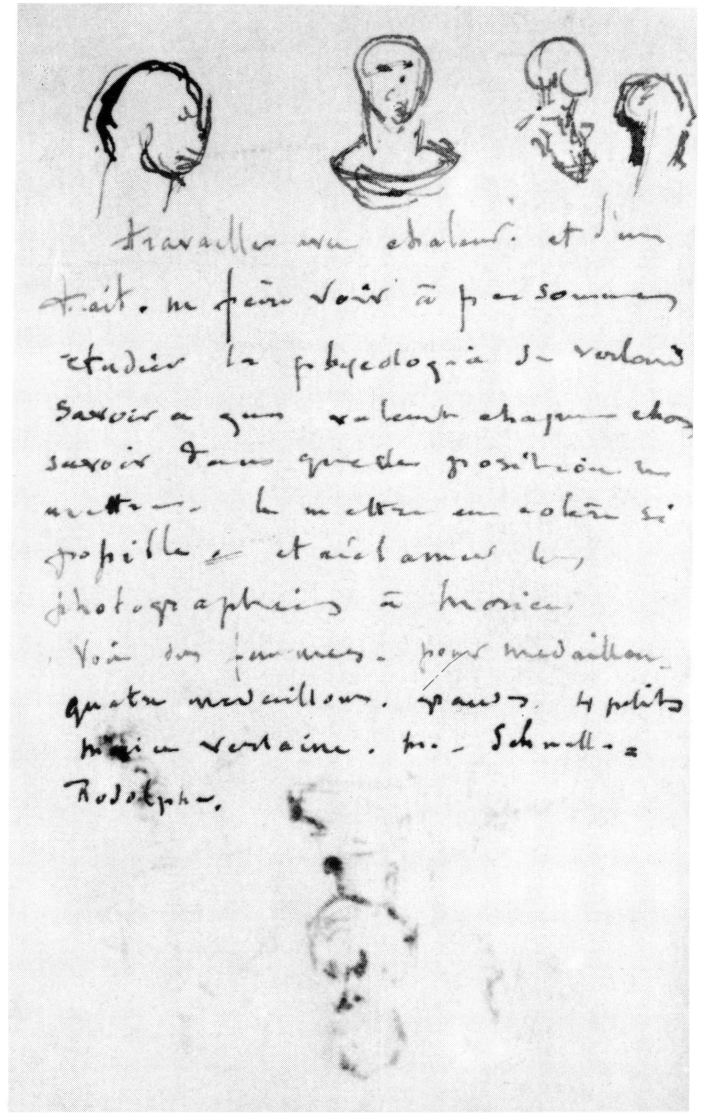 travailler avec chaleur. et d'un
trait. ne faire voir à personnes
étudier la phycologie de verlaine
savoir a quoi valent chaque chose
savoir dans quelle position le
mettre. le mettre en colère si
possible. et réclamer les
photographies à Morice
Voir des femmes. pour medaillon
quatre medaillons. grands. 4 petits
morice verlaine. Schnell =
Rodolphe.